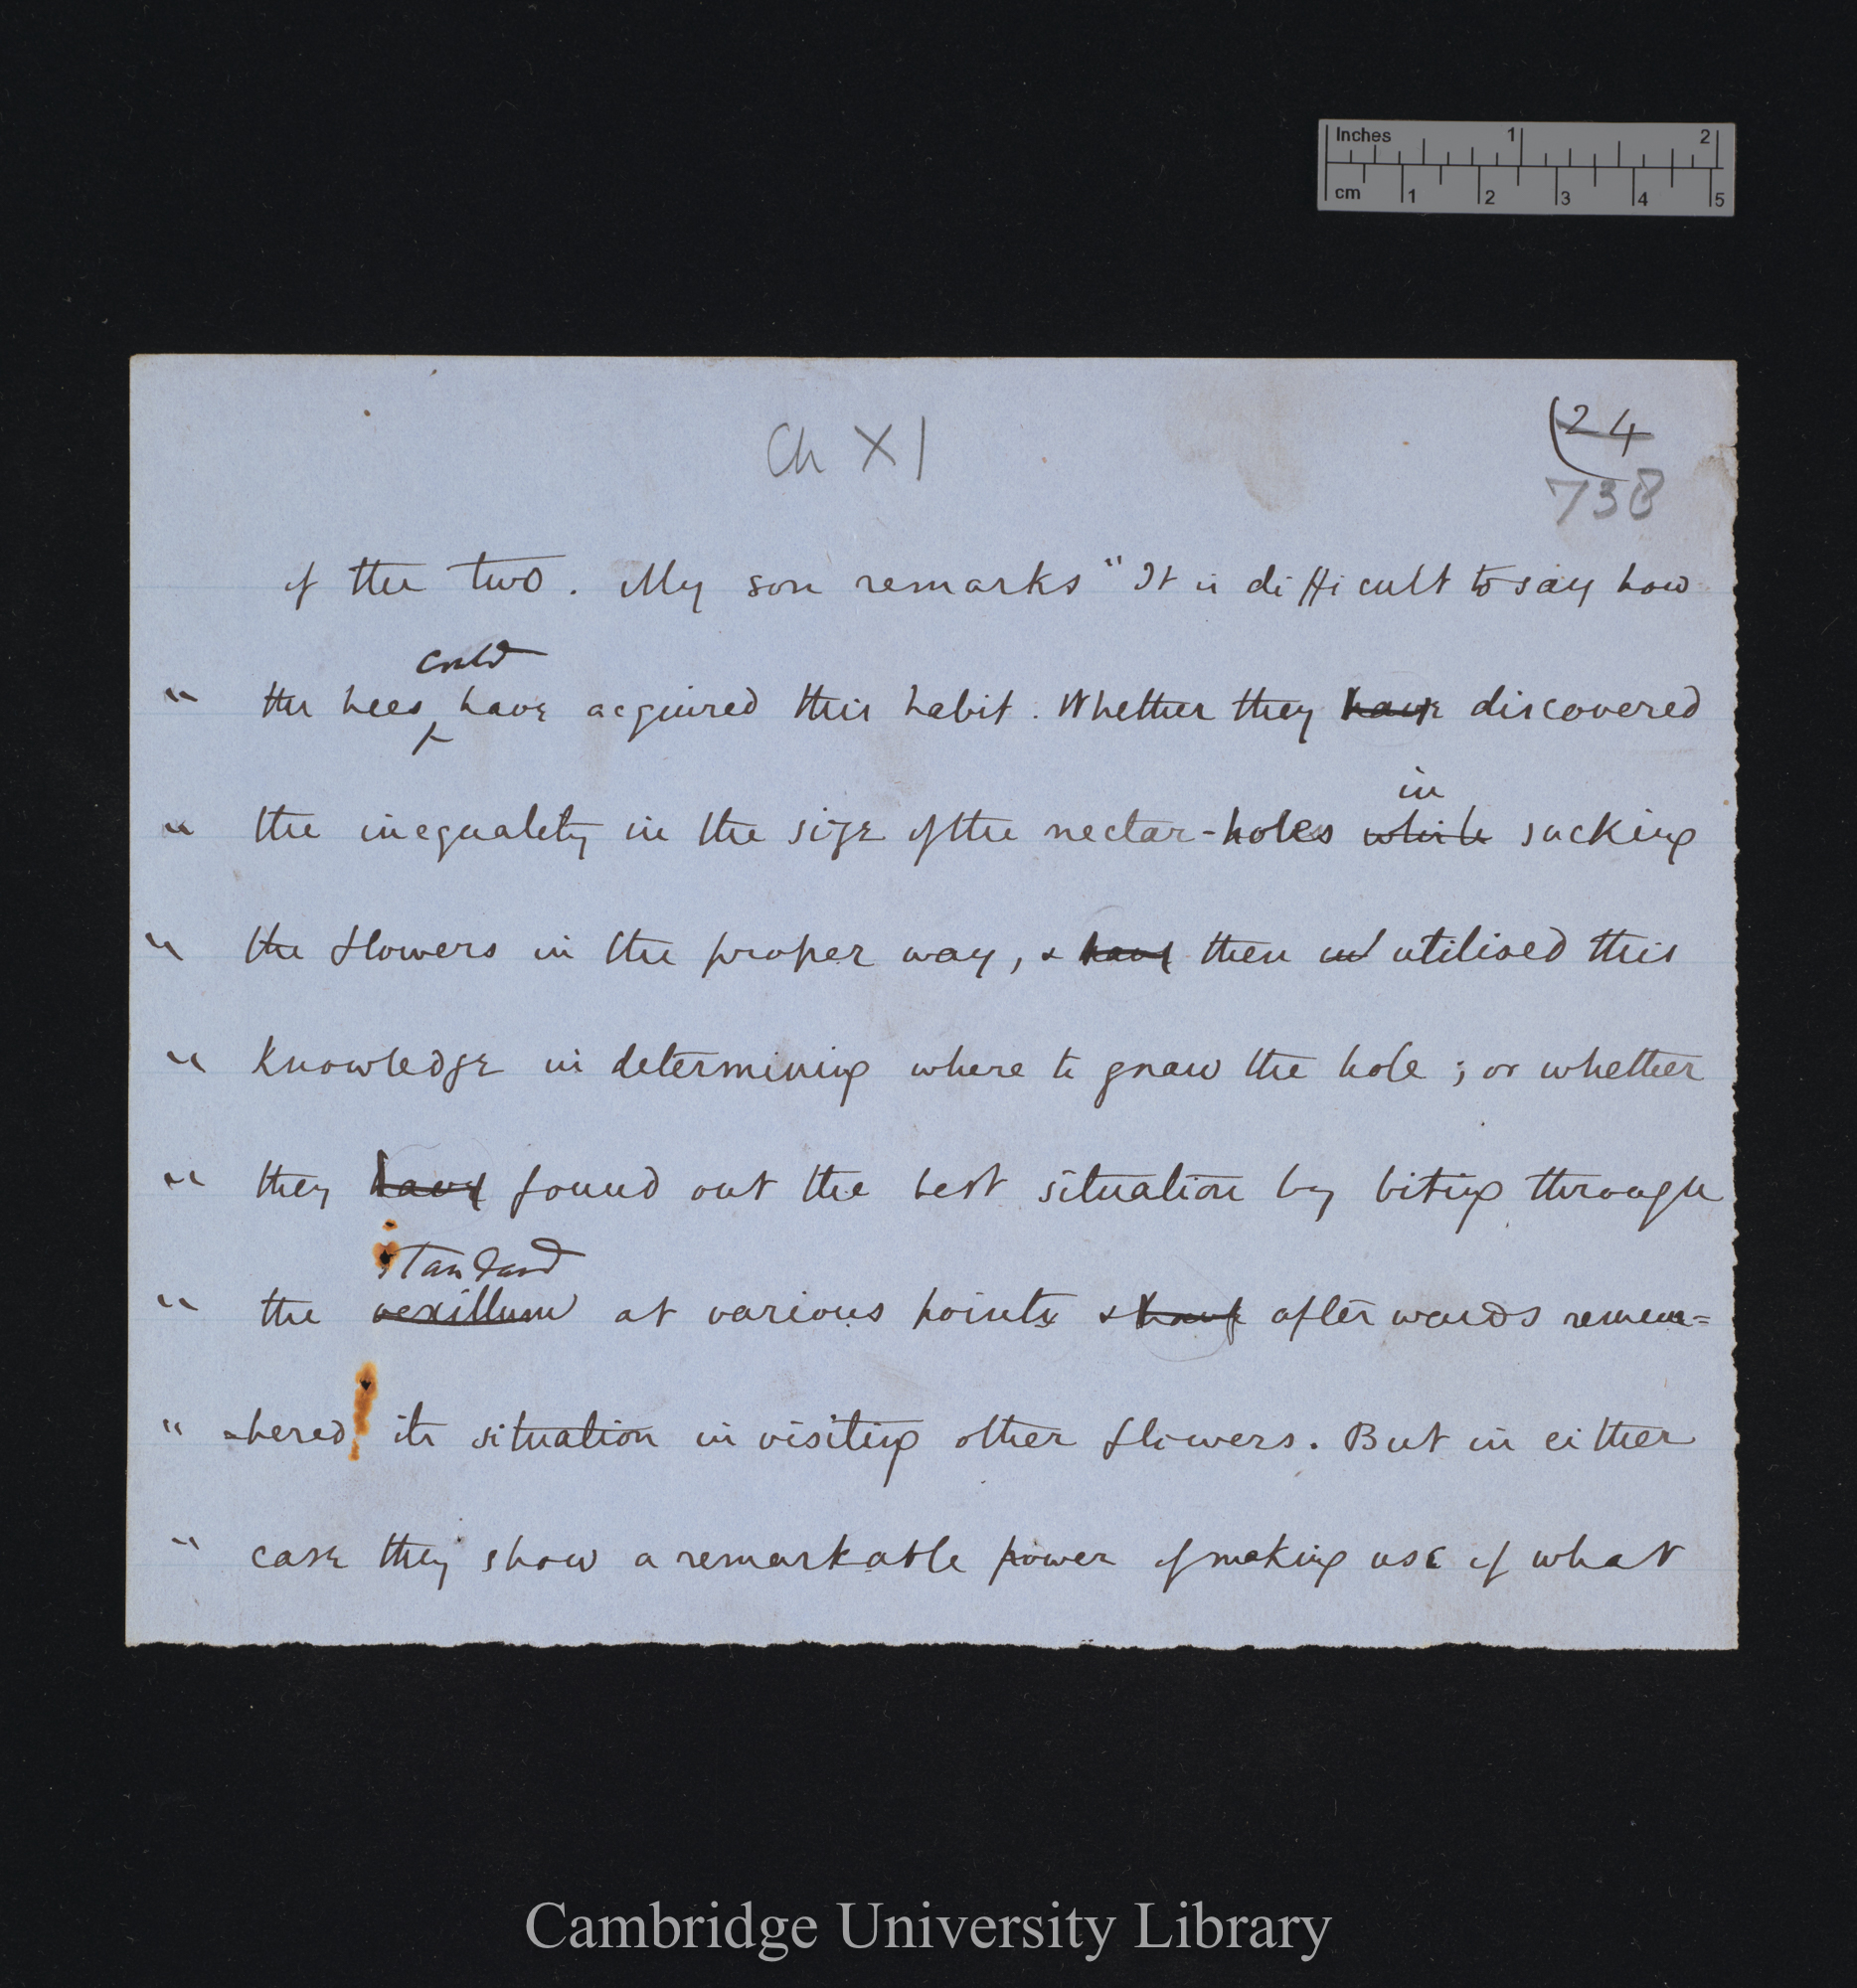 Inches 1 2
cm 1 2 3 4 5
Ch XI
(24
738
of the two. My son remarks "It is difficult to say how
could
" the bees have acquired this habit. Whether they have discovered
in
" the inequality in the size of the nectar-holes while sucking
" the flowers in the proper way, & have then ut utilised this
" knowledge in determining where to gnaw the hole; or whether
" they have found out the best situation by biting through
standard
" the vexillum at various points & have afterwards remem=
" -bered its situation in visiting other flowers. But in either
" case they show a remarkable power of making use of what
Cambridge University Library